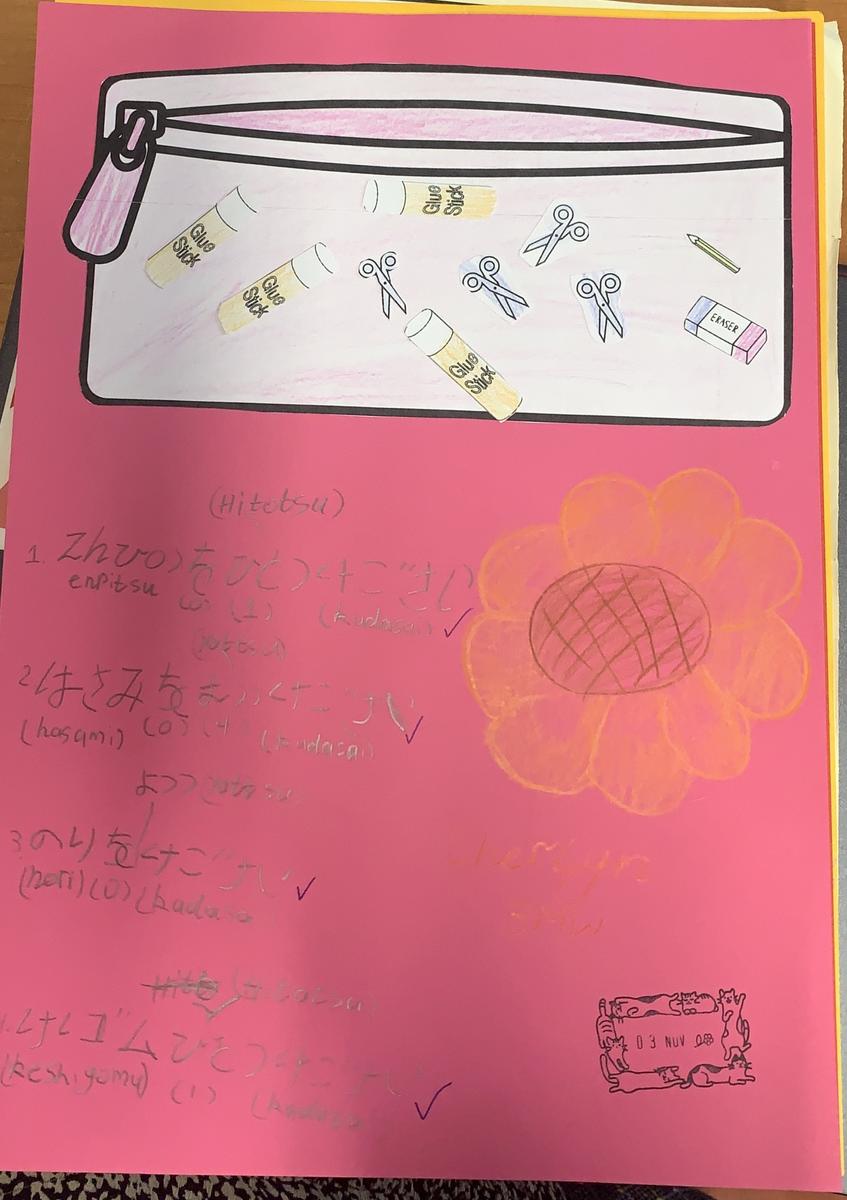 Glue Stick
Glue Stick
Glue Stick
Glue Stick
ERASER
(Hitotsu)
1. えんぴつをひとつください
enpitsu (o) (1) (kudasai)
2. はさみを ください
(hasami) (o) (4) (kudasai)
よっつ
3. のりをください
(nori) (o) (kudasa
(Hitotsu)
4. けしゴムひとつください
(keshigomu) (1) (kudasa
03 NOV